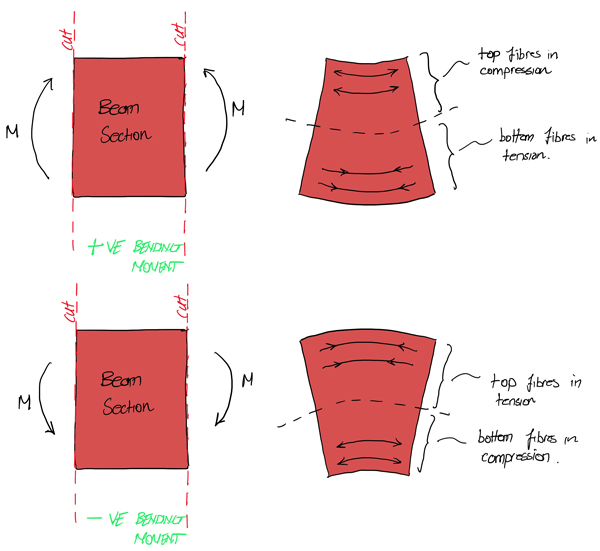 cut
cut
M
Beam
Section
M
+VE BENDING
MOMENT
top fibres in
compression
bottom fibres in
tension.
cut
cut
M
Beam
Section
M
-VE BENDING
MOMENT
top fibres in
tension
bottom fibres in
compression.